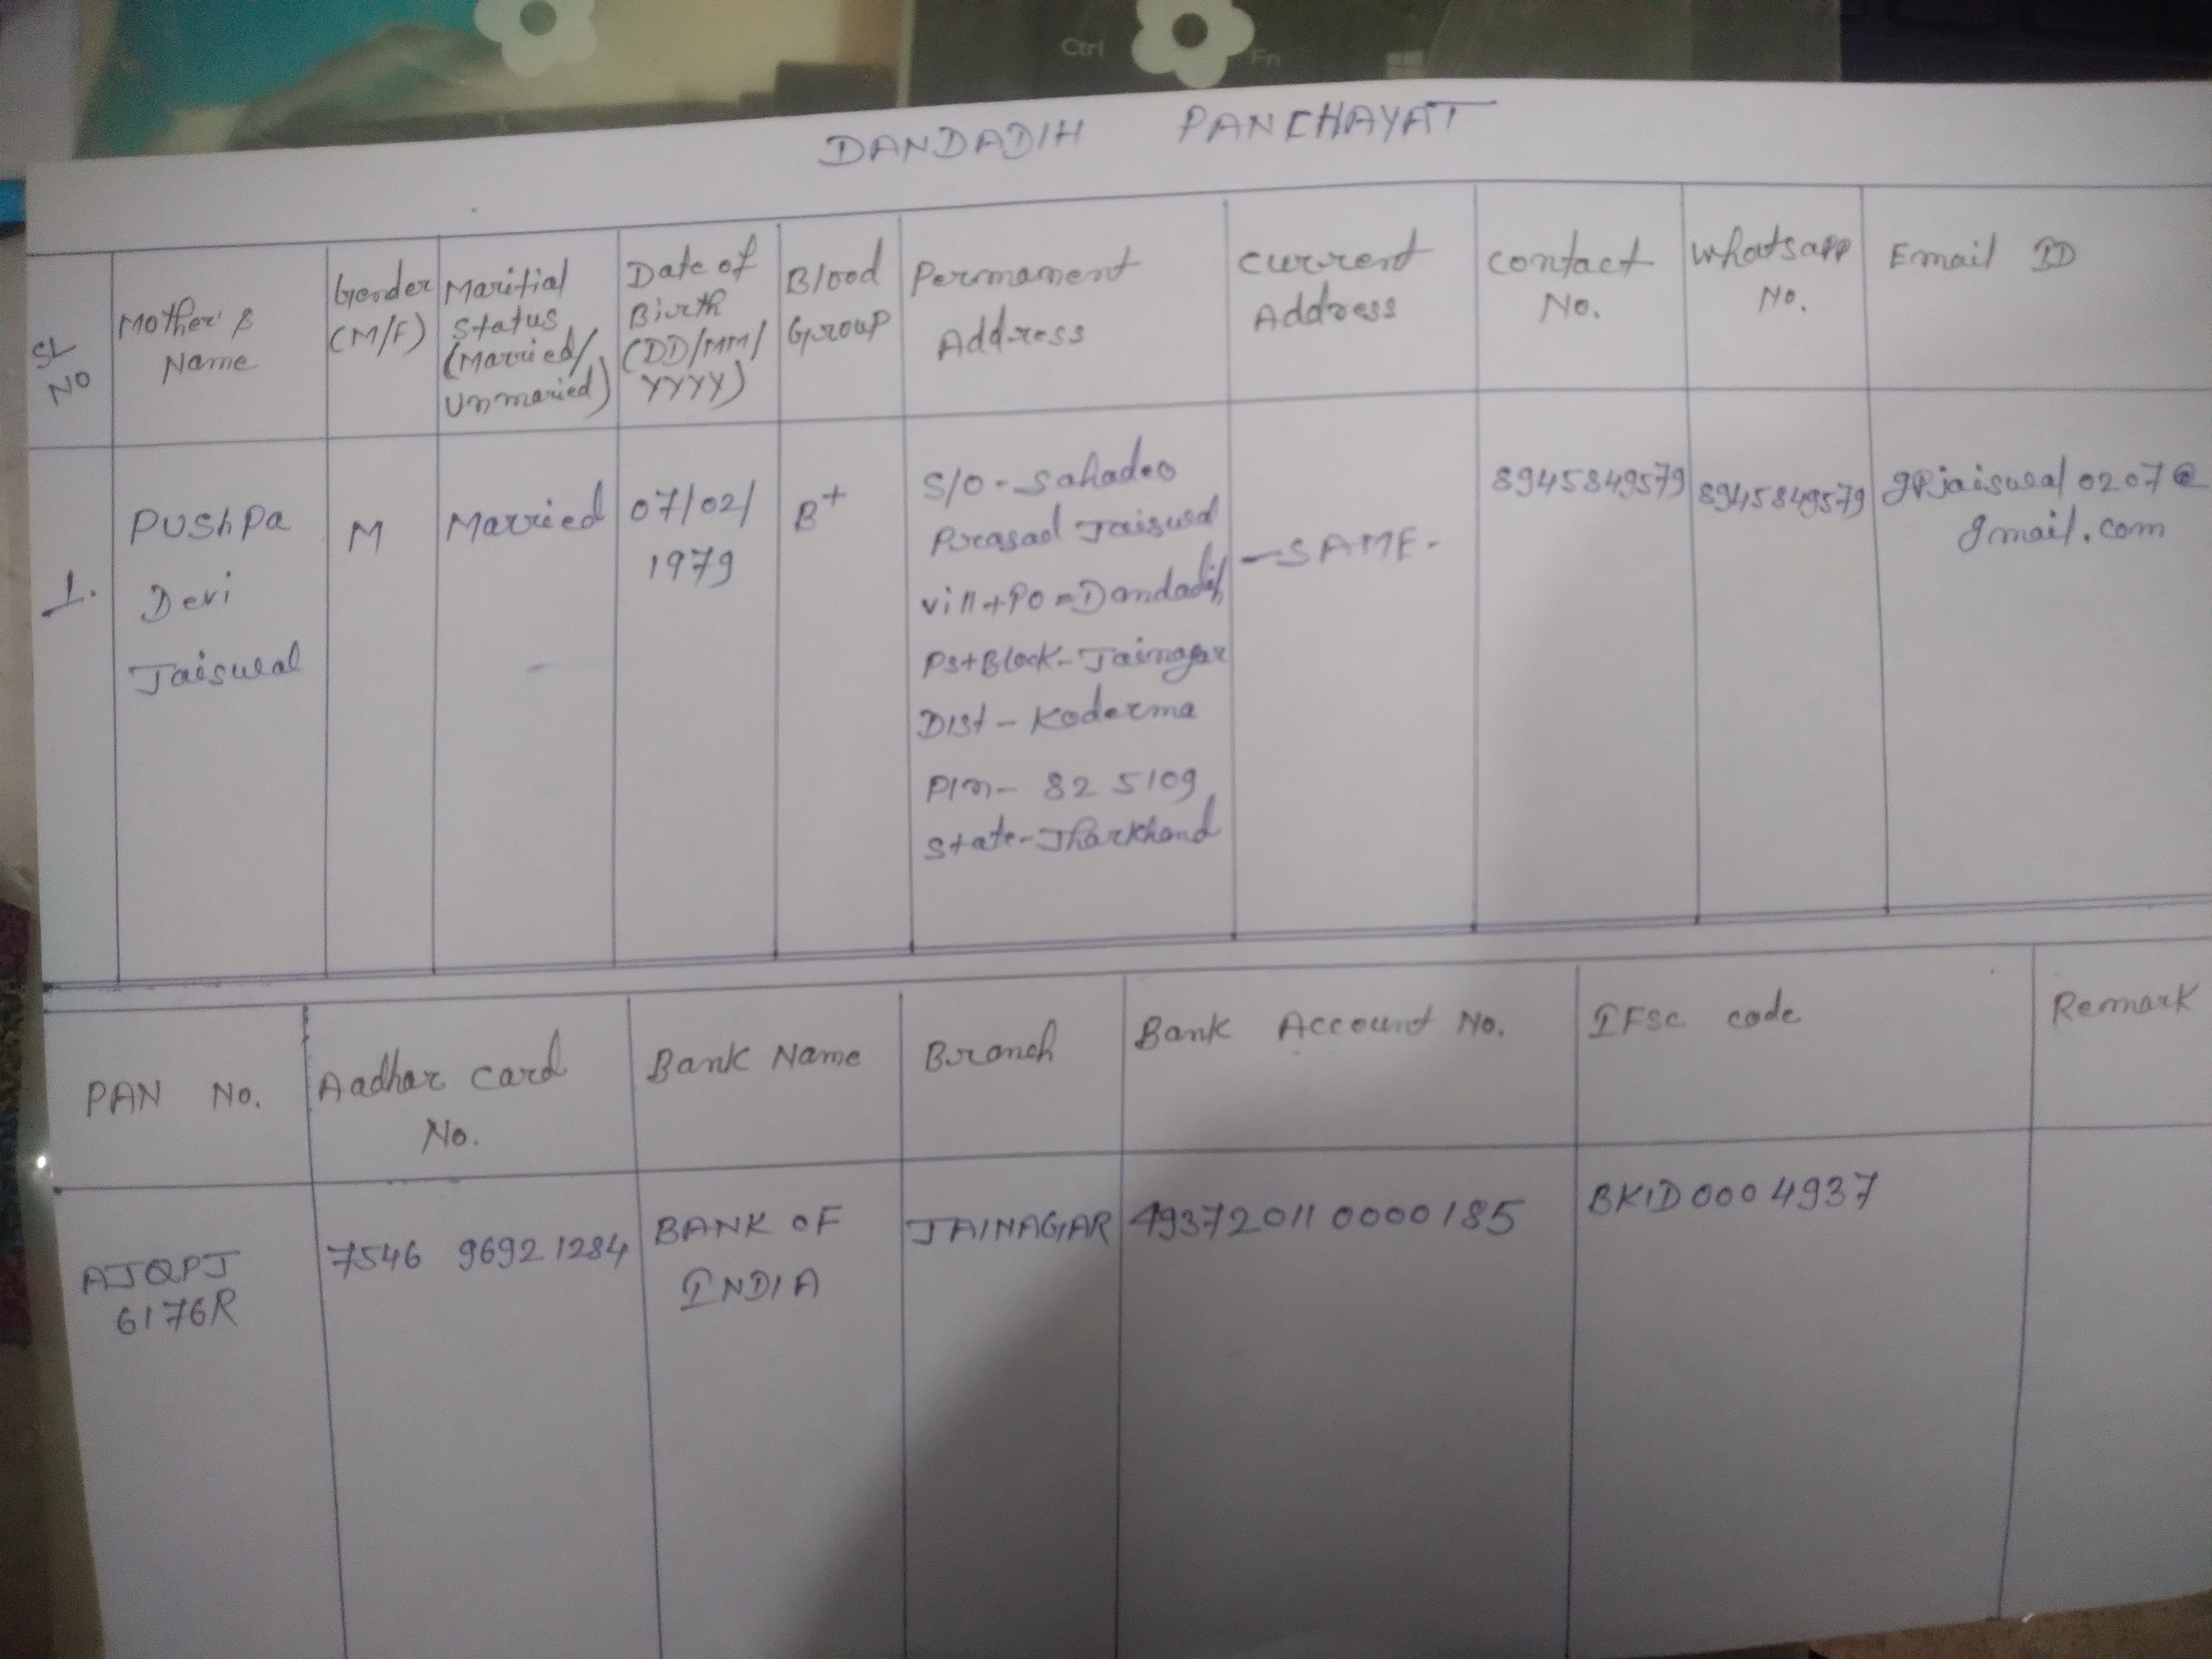 Ctrl
Fn
DANDADIH PANCHAYAT
SL NO
Mother's Name
Gender (M/F)
Maritial Status (Married/ Unmaried)
Date of Birth (DD/MM/ YYYY)
Blood Group
Permanent Address
Current Address
Contact No.
Whatsapp No.
Email ID
1.
Pushpa
Devi
Jaiswal
M
Married
07/02/
1979
B+
S/O - Sahadeo
Prasad Jaiswal
vill+PO = Dandadih
Ps+Block - Jainagar
Dist - Koderma
Pin - 825109
State - Jharkhand
- SAME -
8945849579
8945849579
gpjaiswal0207@
gmail.com
PAN No.
Aadhar card
No.
Bank Name
Branch
Bank Account No.
IFSC code
Remark
AJQPJ
6176R
7546 9692 1284
BANK OF
INDIA
JAINAGAR
493720110000185
BKID0004937